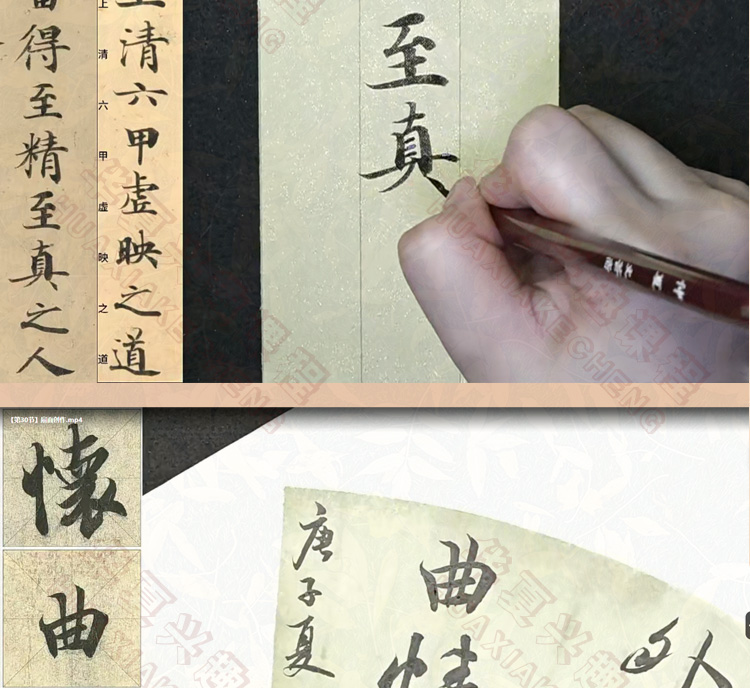 得至精至真之人
上清六甲虚映之道
清六甲虚映之道
至真
【第30节】扇面创作.mp4
懷
曲
曲
庚子夏
华夏兴趣课程
HUAXIAKECHENG